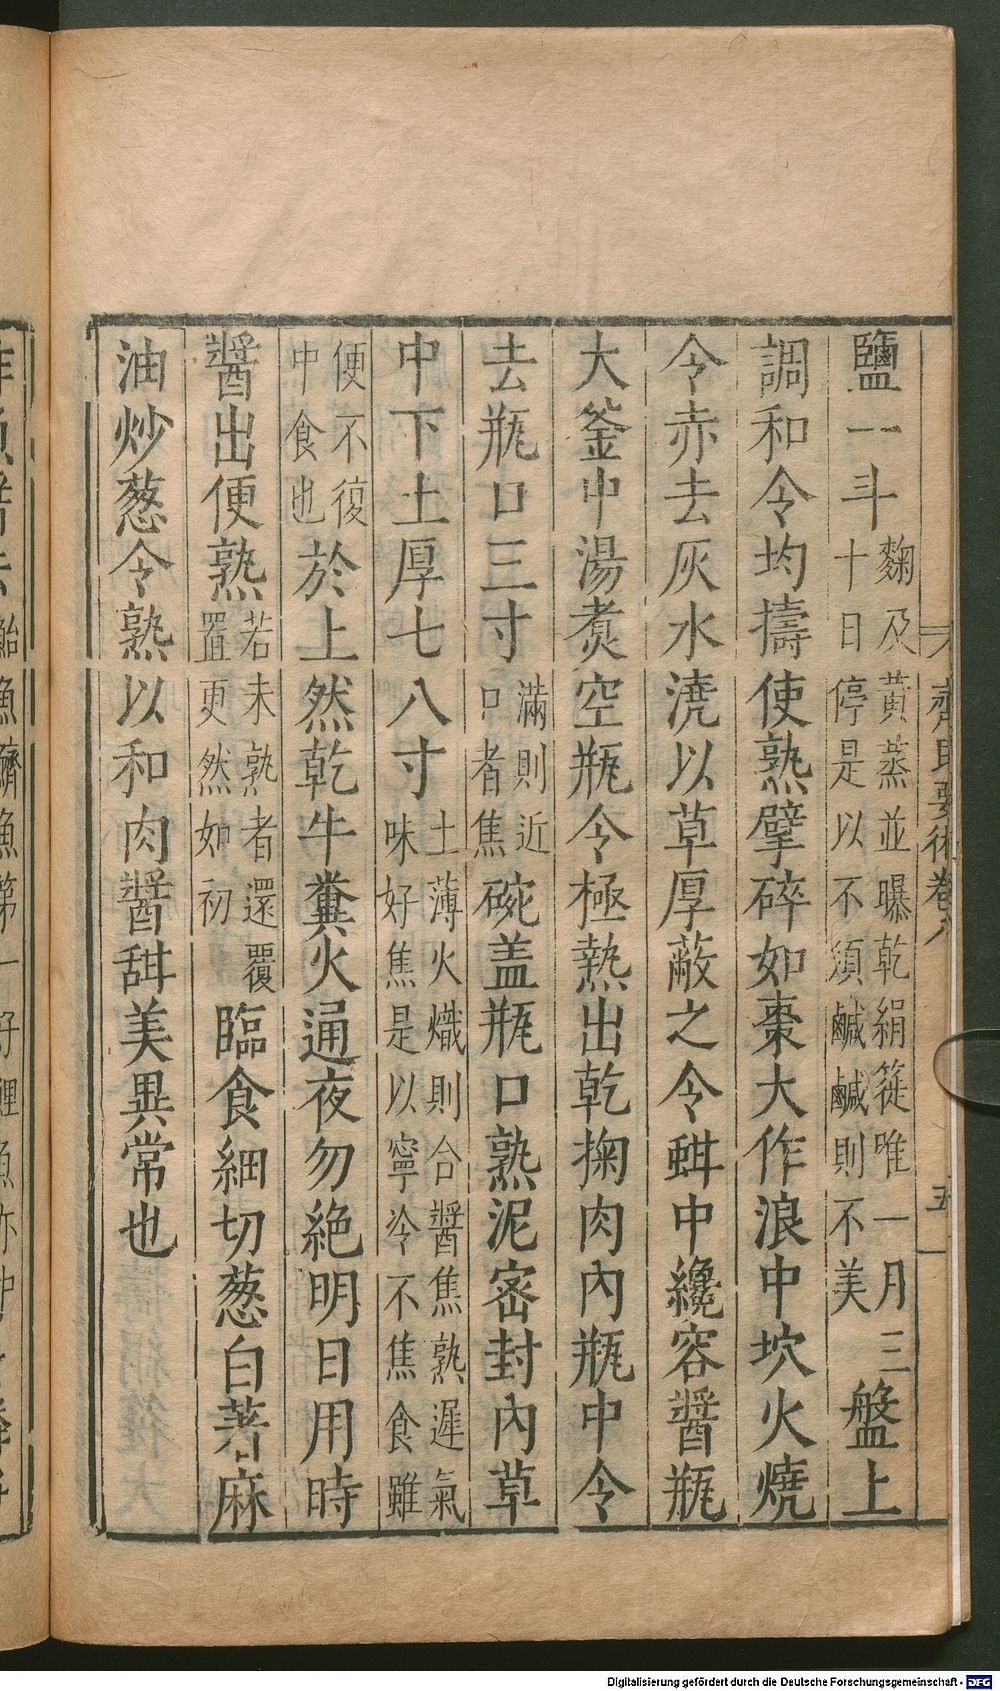 鹽一斗麴及黃蒸並曝乾絹簁唯一月三十日停是以不須鹹鹹則不美盤上
調和令均擣使熟擘碎如棗大作浪中坎火燒
令赤去灰水澆以草厚蔽之令蚶中纔容醬瓶
大釜中湯煑空瓶令極熱出乾掬肉內瓶中令
去瓶口三寸滿則近口者焦碗盖瓶口熟泥密封內草
中下土厚七八寸土薄火熾則合醬焦熟遲氣味好焦是以寧冷不焦食雖
便不復中食也於上然乾牛糞火通夜勿絶明日用時
醬出便熟若未熟者還覆置更然如初臨食細切葱白著麻
油炒葱令熟以和肉醬甜美異常也
齊民要術卷八
五
Digitalisierung gefördert durch die Deutsche Forschungsgemeinschaft - DFG